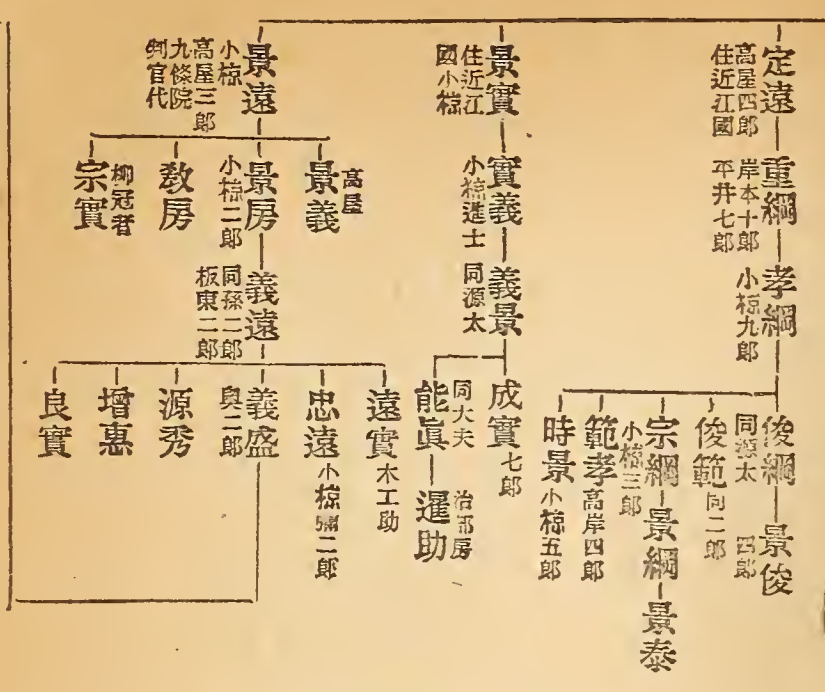 定遠
高屋四郎
住近江國
重綱
岸本十郎
平井七郎
孝綱
小椋九郎
俊綱
同源太
景俊
四郎
俊範
同二郎
宗綱
小椋三郎
景綱
景泰
範孝
高岸四郎
時景
小椋五郎
景實
住近江
國小椋
實義
小椋進士
義景
同源太
成實
七郎
能眞
同大夫
暹助
治部房
景遠
小椋
高屋三郎
九條院
判官代
景義
高屋
景房
小椋二郎
義遠
同孫二郎
板東二郎
遠實
木工助
忠遠
小椋彌二郎
義盛
與二郎
源秀
增惠
良實
敎房
宗實
柳冠者